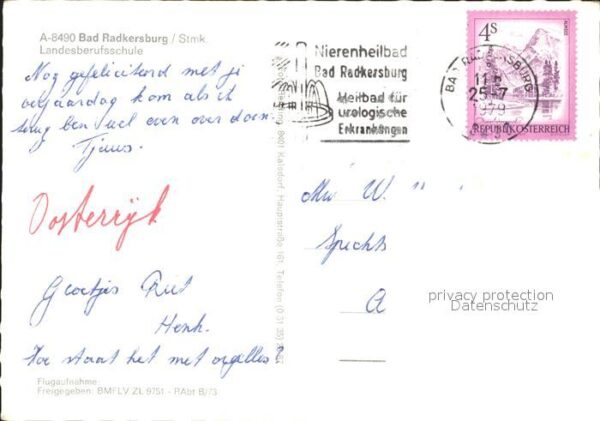 A-8490 Bad Radkersburg / Stmk.
Landesberufsschule
Nog gefeliciteerd met je
verjaardag kom als ik
terug ben wel even over doen
Tjeus.
Oosterrijk
Groetjes Riet
Henk.
Hoe staat het met
Flugaufnahme:
Freigegeben: BMFLV ZL 9751 - RAbt B/73
8401 Kalsdorf, Hauptstraße 161, Telefon (0 31 35)
Nierenheilbad
Bad Radkersburg
Heilbad für
urologische
Erkrankungen
4S
ALMSEE
REPUBLIK ÖSTERREICH
BAD RADKERSBURG
25-7
1979
W.
Spechts
A
privacy protection
Datenschutz